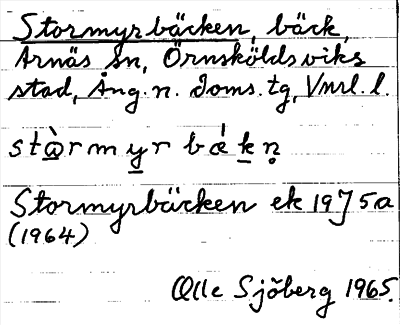 Stormyrbäcken, bäck,
Arnäs sn, Örnsköldsviks
stad, Ång. n. doms. tg, Vnrl. l.
stὰrmyr bǽkn̥
Stormyrbäcken ek 19J5a
(1964)
Olle Sjöberg 1965.